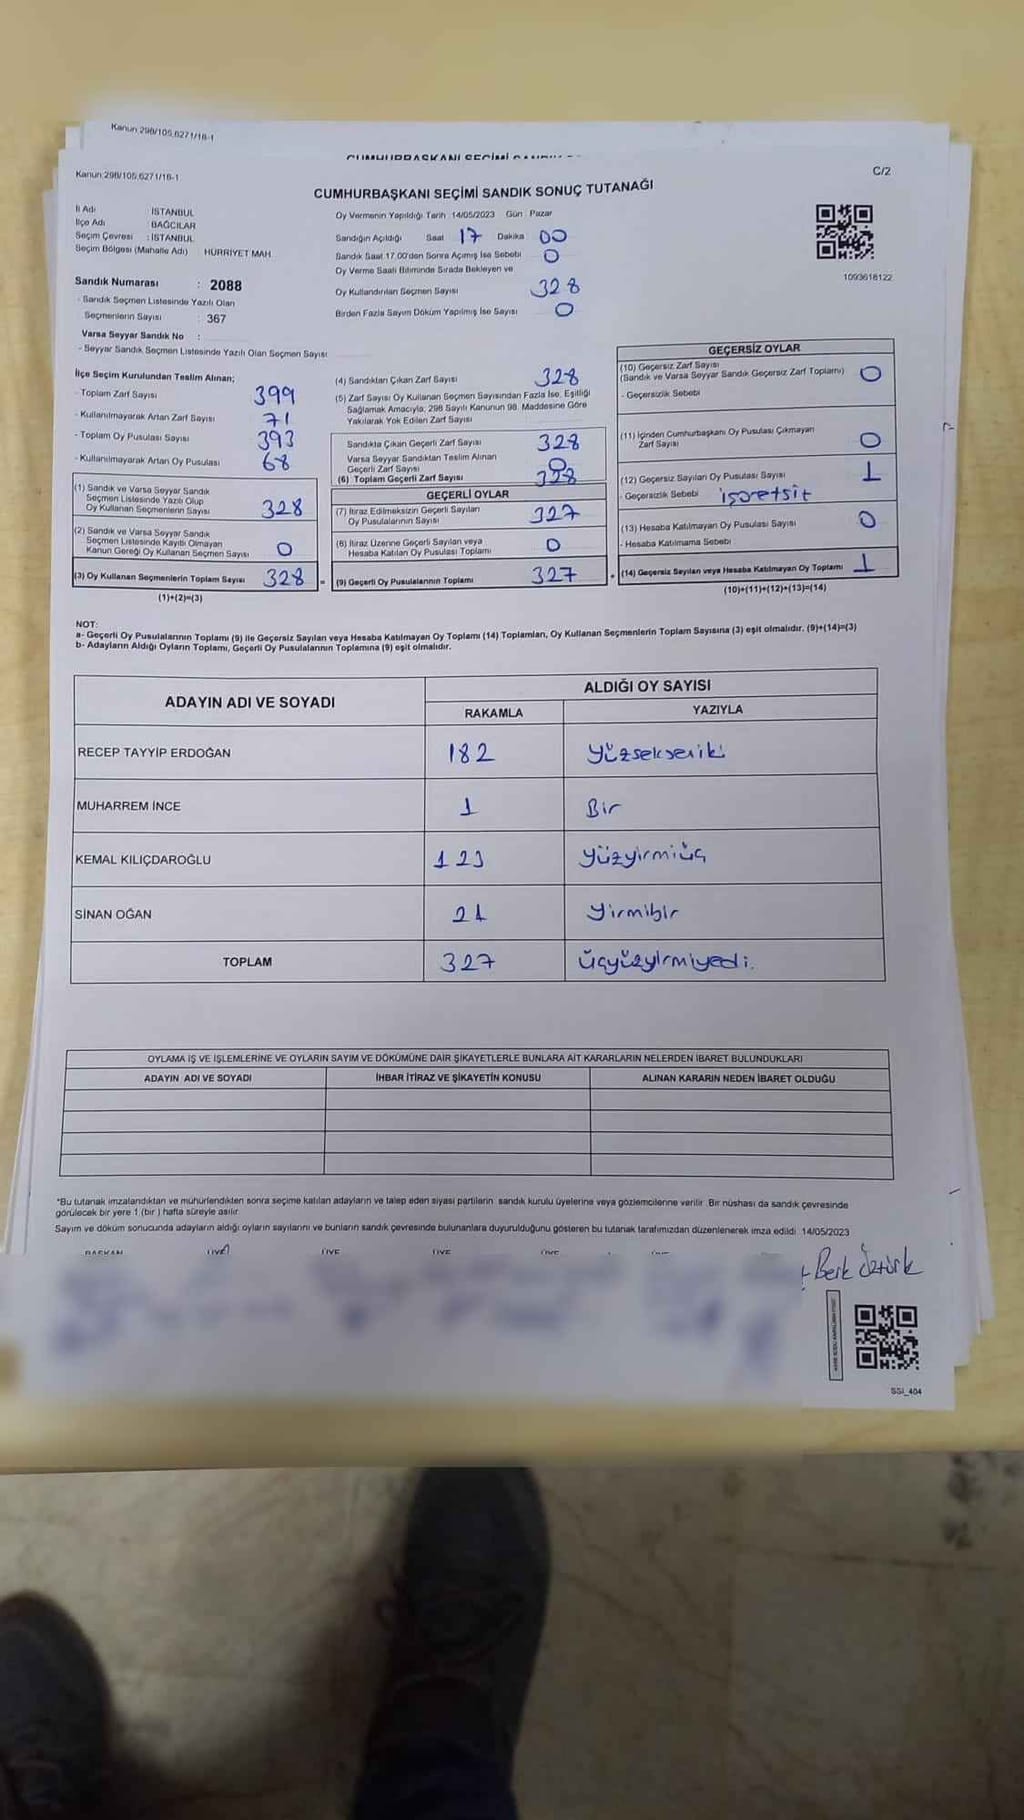 Kanun:298/105,6271/18-1
Kanun:298/105,6271/18-1
C/2
CUMHURBAŞKANI SEÇİMİ SANDIK SONUÇ TUTANAĞI
İl Adı : İSTANBUL
İlçe Adı : BAĞCILAR
Seçim Çevresi : İSTANBUL
Seçim Bölgesi (Mahalle Adı) HÜRRİYET MAH.
Sandık Numarası : 2088
- Sandık Seçmen Listesinde Yazılı Olan
Seçmenlerin Sayısı : 367
Varsa Seyyar Sandık No :
- Seyyar Sandık Seçmen Listesinde Yazılı Olan Seçmen Sayısı
Oy Vermenin Yapıldığı Tarih 14/05/2023 Gün Pazar
Sandığın Açıldığı Saat 17 Dakika 00
Sandık Saat 17.00'den Sonra Açımış İse Sebebi 0
Oy Verme Saati Bitiminde Sırada Bekleyen ve
Oy Kullandırılan Seçmen Sayısı 328
Birden Fazla Sayım Döküm Yapılmış İse Sayısı 0
1093618122
İlçe Seçim Kurulundan Teslim Alınan;
- Toplam Zarf Sayısı 399
- Kullanılmayarak Artan Zarf Sayısı 71
- Toplam Oy Pusulası Sayısı 393
- Kullanılmayarak Artan Oy Pusulası 68
(1) Sandık ve Varsa Seyyar Sandık
Seçmen Listesinde Yazılı Olup
Oy Kullanan Seçmenlerin Sayısı 328
(2) Sandık ve Varsa Seyyar Sandık
Seçmen Listesinde Kayıtlı Olmayan
Kanun Gereği Oy Kullanan Seçmen Sayısı 0
(3) Oy Kullanan Seçmenlerin Toplam Sayısı 328
(1)+(2)=(3)
(4) Sandıktan Çıkan Zarf Sayısı 328
(5) Zarf Sayısı Oy Kullanan Seçmen Sayısından Fazla İse, Eşitliği
Sağlamak Amacıyla, 298 Sayılı Kanunun 98. Maddesine Göre
Yakılarak Yok Edilen Zarf Sayısı
Sandıkta Çıkan Geçerli Zarf Sayısı 328
Varsa Seyyar Sandıktan Teslim Alınan
Geçerli Zarf Sayısı 0
(6) Toplam Geçerli Zarf Sayısı 328
GEÇERLİ OYLAR
(7) İtiraz Edilmeksizin Geçerli Sayılan
Oy Pusulalarının Sayısı 327
(8) İtiraz Üzerine Geçerli Sayılan veya
Hesaba Katılan Oy Pusulası Toplamı 0
= (9) Geçerli Oy Pusulalarının Toplamı 327
GEÇERSİZ OYLAR
(10) Geçersiz Zarf Sayısı
(Sandık ve Varsa Seyyar Sandık Geçersiz Zarf Toplamı) 0
- Geçersizlik Sebebi
(11) İçinden Cumhurbaşkanı Oy Pusulası Çıkmayan
Zarf Sayısı 0
(12) Geçersiz Sayılan Oy Pusulası Sayısı 1
- Geçersizlik Sebebi işaretsiz
(13) Hesaba Katılmayan Oy Pusulası Sayısı 0
- Hesaba Katılmama Sebebi
+ (14) Geçersiz Sayılan veya Hesaba Katılmayan Oy Toplamı 1
(10)+(11)+(12)+(13)=(14)
NOT:
a- Geçerli Oy Pusulalarının Toplamı (9) ile Geçersiz Sayılan veya Hesaba Katılmayan Oy Toplamı (14) Toplamları, Oy Kullanan Seçmenlerin Toplam Sayısına (3) eşit olmalıdır. (9)+(14)=(3)
b- Adayların Aldığı Oyların Toplamı, Geçerli Oy Pusulalarının Toplamına (9) eşit olmalıdır.
ADAYIN ADI VE SOYADI
ALDIĞI OY SAYISI
RAKAMLA YAZIYLA
RECEP TAYYİP ERDOĞAN 182 Yüzsekseniki
MUHARREM İNCE 1 Bir
KEMAL KILIÇDAROĞLU 123 Yüzyirmiüç
SİNAN OĞAN 21 Yirmibir
TOPLAM 327 Üçyüzyirmiyedi.
OYLAMA İŞ VE İŞLEMLERİNE VE OYLARIN SAYIM VE DÖKÜMÜNE DAİR ŞİKAYETLERLE BUNLARA AİT KARARLARIN NELERDEN İBARET BULUNDUKLARI
ADAYIN ADI VE SOYADI İHBAR İTİRAZ VE ŞİKAYETİN KONUSU ALINAN KARARIN NEDEN İBARET OLDUĞU
*Bu tutanak imzalandıktan ve mühürlendikten sonra seçime katılan adayların ve talep eden siyasi partilerin sandık kurulu üyelerine veya gözlemcilerine verilir. Bir nüshası da sandık çevresinde
görülecek bir yere 1 (bir) hafta süreyle asılır.
Sayım ve döküm sonucunda adayların aldığı oyların sayılarını ve bunların sandık çevresinde bulunanlara duyurulduğunu gösteren bu tutanak tarafımızdan düzenlenerek imza edildi. 14/05/2023
BAŞKAN ÜYE ÜYE ÜYE ÜYE
Berk Öztürk
SSİ_404